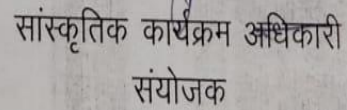 सांस्कृतिक कार्यक्रम अधिकारी
संयोजक